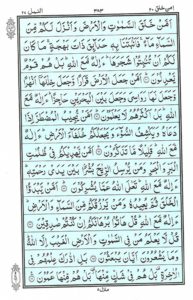 امن خلق ٢٠ ٣٨٣ النمل ٢٧
اَمَّنْ خَلَقَ السَّمٰوٰتِ وَالْاَرْضَ وَاَنْزَلَ لَكُمْ مِّنَ
السَّمَآءِ مَآءً ۚ فَاَنْۢبَتْنَا بِهٖ حَدَآئِقَ ذَاتَ بَهْجَةٍ ۚ مَا كَانَ
لَكُمْ اَنْ تُنْۢبِتُوْا شَجَرَهَا ؕ ءَاِلٰهٌ مَّعَ اللّٰهِ ؕ بَلْ هُمْ قَوْمٌ
يَّعْدِلُوْنَ ۞ اَمَّنْ جَعَلَ الْاَرْضَ قَرَارًا وَّجَعَلَ خِلٰلَهَآ اَنْهٰرًا
وَّجَعَلَ لَهَا رَوَاسِيَ وَجَعَلَ بَيْنَ الْبَحْرَيْنِ حَاجِزًا ؕ ءَاِلٰهٌ
مَّعَ اللّٰهِ ؕ بَلْ اَكْثَرُهُمْ لَا يَعْلَمُوْنَ ۞ اَمَّنْ يُّجِيْبُ الْمُضْطَرَّ
اِذَا دَعَاهُ وَيَكْشِفُ السُّوْٓءَ وَيَجْعَلُكُمْ خُلَفَآءَ الْاَرْضِ ؕ
ءَاِلٰهٌ مَّعَ اللّٰهِ ؕ قَلِيْلًا مَّا تَذَكَّرُوْنَ ۞ اَمَّنْ يَّهْدِيْكُمْ فِيْ ظُلُمٰتِ
الْبَرِّ وَالْبَحْرِ وَمَنْ يُّرْسِلُ الرِّيٰحَ بُشْرًۢا بَيْنَ يَدَيْ رَحْمَتِهٖ ؕ
ءَاِلٰهٌ مَّعَ اللّٰهِ ؕ تَعٰلَى اللّٰهُ عَمَّا يُشْرِكُوْنَ ۞ اَمَّنْ يَّبْدَؤُا
الْخَلْقَ ثُمَّ يُعِيْدُهٗ وَمَنْ يَّرْزُقُكُمْ مِّنَ السَّمَآءِ وَالْاَرْضِ ؕ
ءَاِلٰهٌ مَّعَ اللّٰهِ ؕ قُلْ هَاتُوْا بُرْهَانَكُمْ اِنْ كُنْتُمْ صٰدِقِيْنَ ۞
قُلْ لَّا يَعْلَمُ مَنْ فِي السَّمٰوٰتِ وَالْاَرْضِ الْغَيْبَ اِلَّا اللّٰهُ ؕ
وَمَا يَشْعُرُوْنَ اَيَّانَ يُبْعَثُوْنَ ۞ بَلِ ادّٰرَكَ عِلْمُهُمْ فِي
الْاٰخِرَةِ ۫ بَلْ هُمْ فِيْ شَكٍّ مِّنْهَا ۫ بَلْ هُمْ مِّنْهَا عَمُوْنَ ۞
منزل ٥